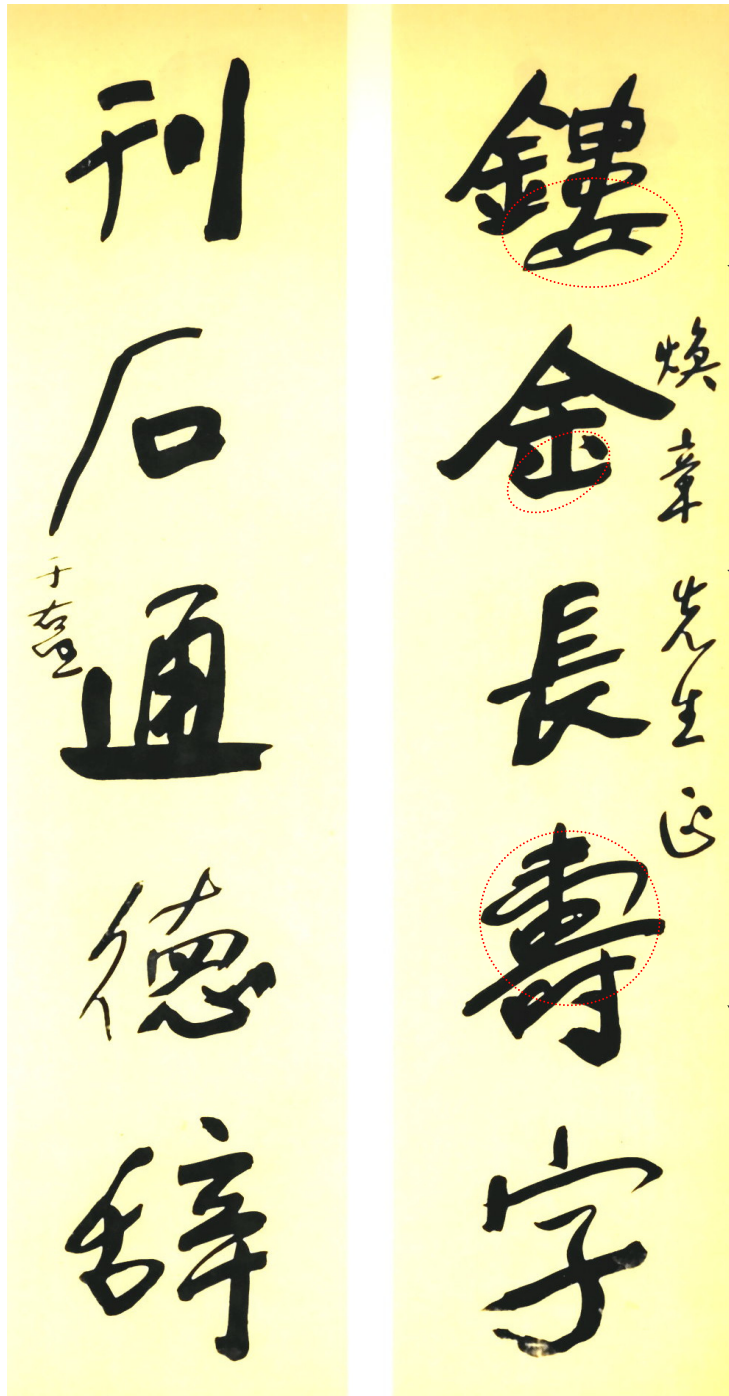 鏤金長壽字
煥章先生正
刊石通德辞
于右任